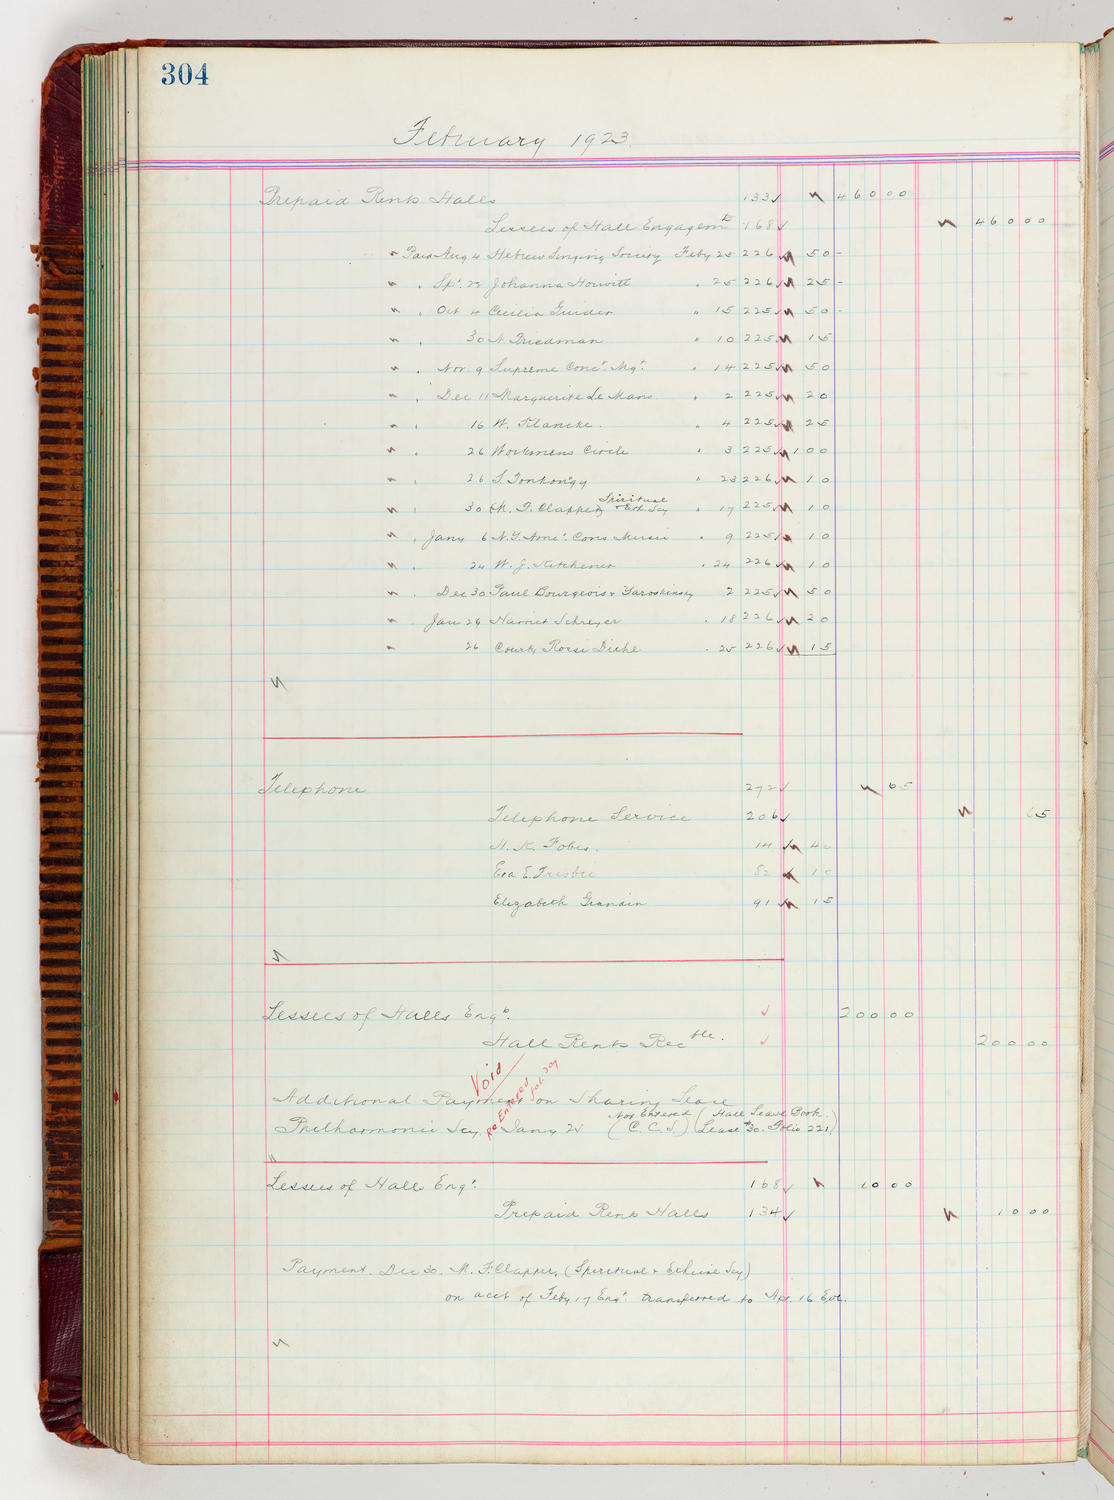 304
February 1923
Prepaid Rents Halls 133 ✓ 460 00
Lessees of Hall Engagemts 168 ✓ 460 00
" Paid Aug 4 Hebrew Singing Society Feby 25 226 ✓ 50 -
" " Sp. 22 Johanna Horwitt " 25 226 ✓ 25 -
" " Oct 4 Cecilia Guider " 15 225 ✓ 50 -
" " 30 N. Friedman " 10 225 ✓ 15
" " Nov. 9 Supreme Conct. Mgt. " 14 225 ✓ 50
" " Dec 11 Marguerite Le Mans. " 2 225 ✓ 20
" " 16 W. Klancke. " 4 225 ✓ 25
" " 26 Workmens Circle " 3 225 ✓ 100
" " 26 S. Tonkongy " 23 226 ✓ 10
" " 30 M. F. Clapper Spiritual & Eth. Scy " 17 225 ✓ 10
" " Jany 6 N.Y. Cons Music " 9 225 ✓ 10
" " 24 W. J. Kitchener " 24 226 ✓ 10
" " Dec 30 Paul Bourgeois & Yaroshinsky 2 225 ✓ 50
" " Jan 24 Harriet Schreyer " 18 226 ✓ 20
" 26 Court Rossi Diehl " 25 226 ✓ 15
Telephone 272 ✓ 65
Telephone Service 206 ✓ 65
14 ✓ 40
Eva E. Frisbie 82 ✓ 10
Elizabeth 91 ✓ 15
Lessees of Halls Engts. ✓ 200 00
Hall Rents Recble. ✓ 200 00
Void
Re Entered fol. 309
Additional Payment on Sharing Lease
Philharmonic Scy. Jany 25 Not Entered (C.C.S.) (Hall Lease Book. Lease #30. Folio 221)
Lessees of Hall Engt. 168 ✓ 10 00
Prepaid Rents Halls 134 ✓ 10 00
Payment. Dec 30. M. F. Clapper. (Spiritual & Ethical Scy)
on acct of Feby 17 Engt. transferred to Apr. 16 Eve.